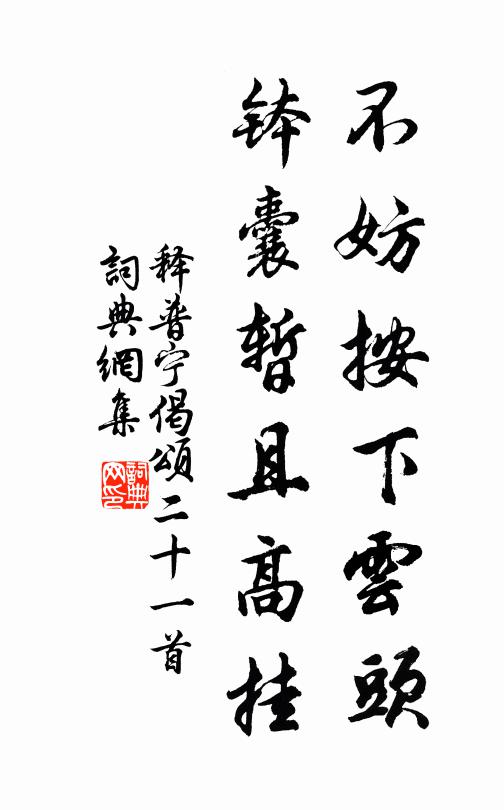 不妨按下雲頭
钵囊暫且高挂
释普宁偈頌二十一首
詞典網集
詞典
网印